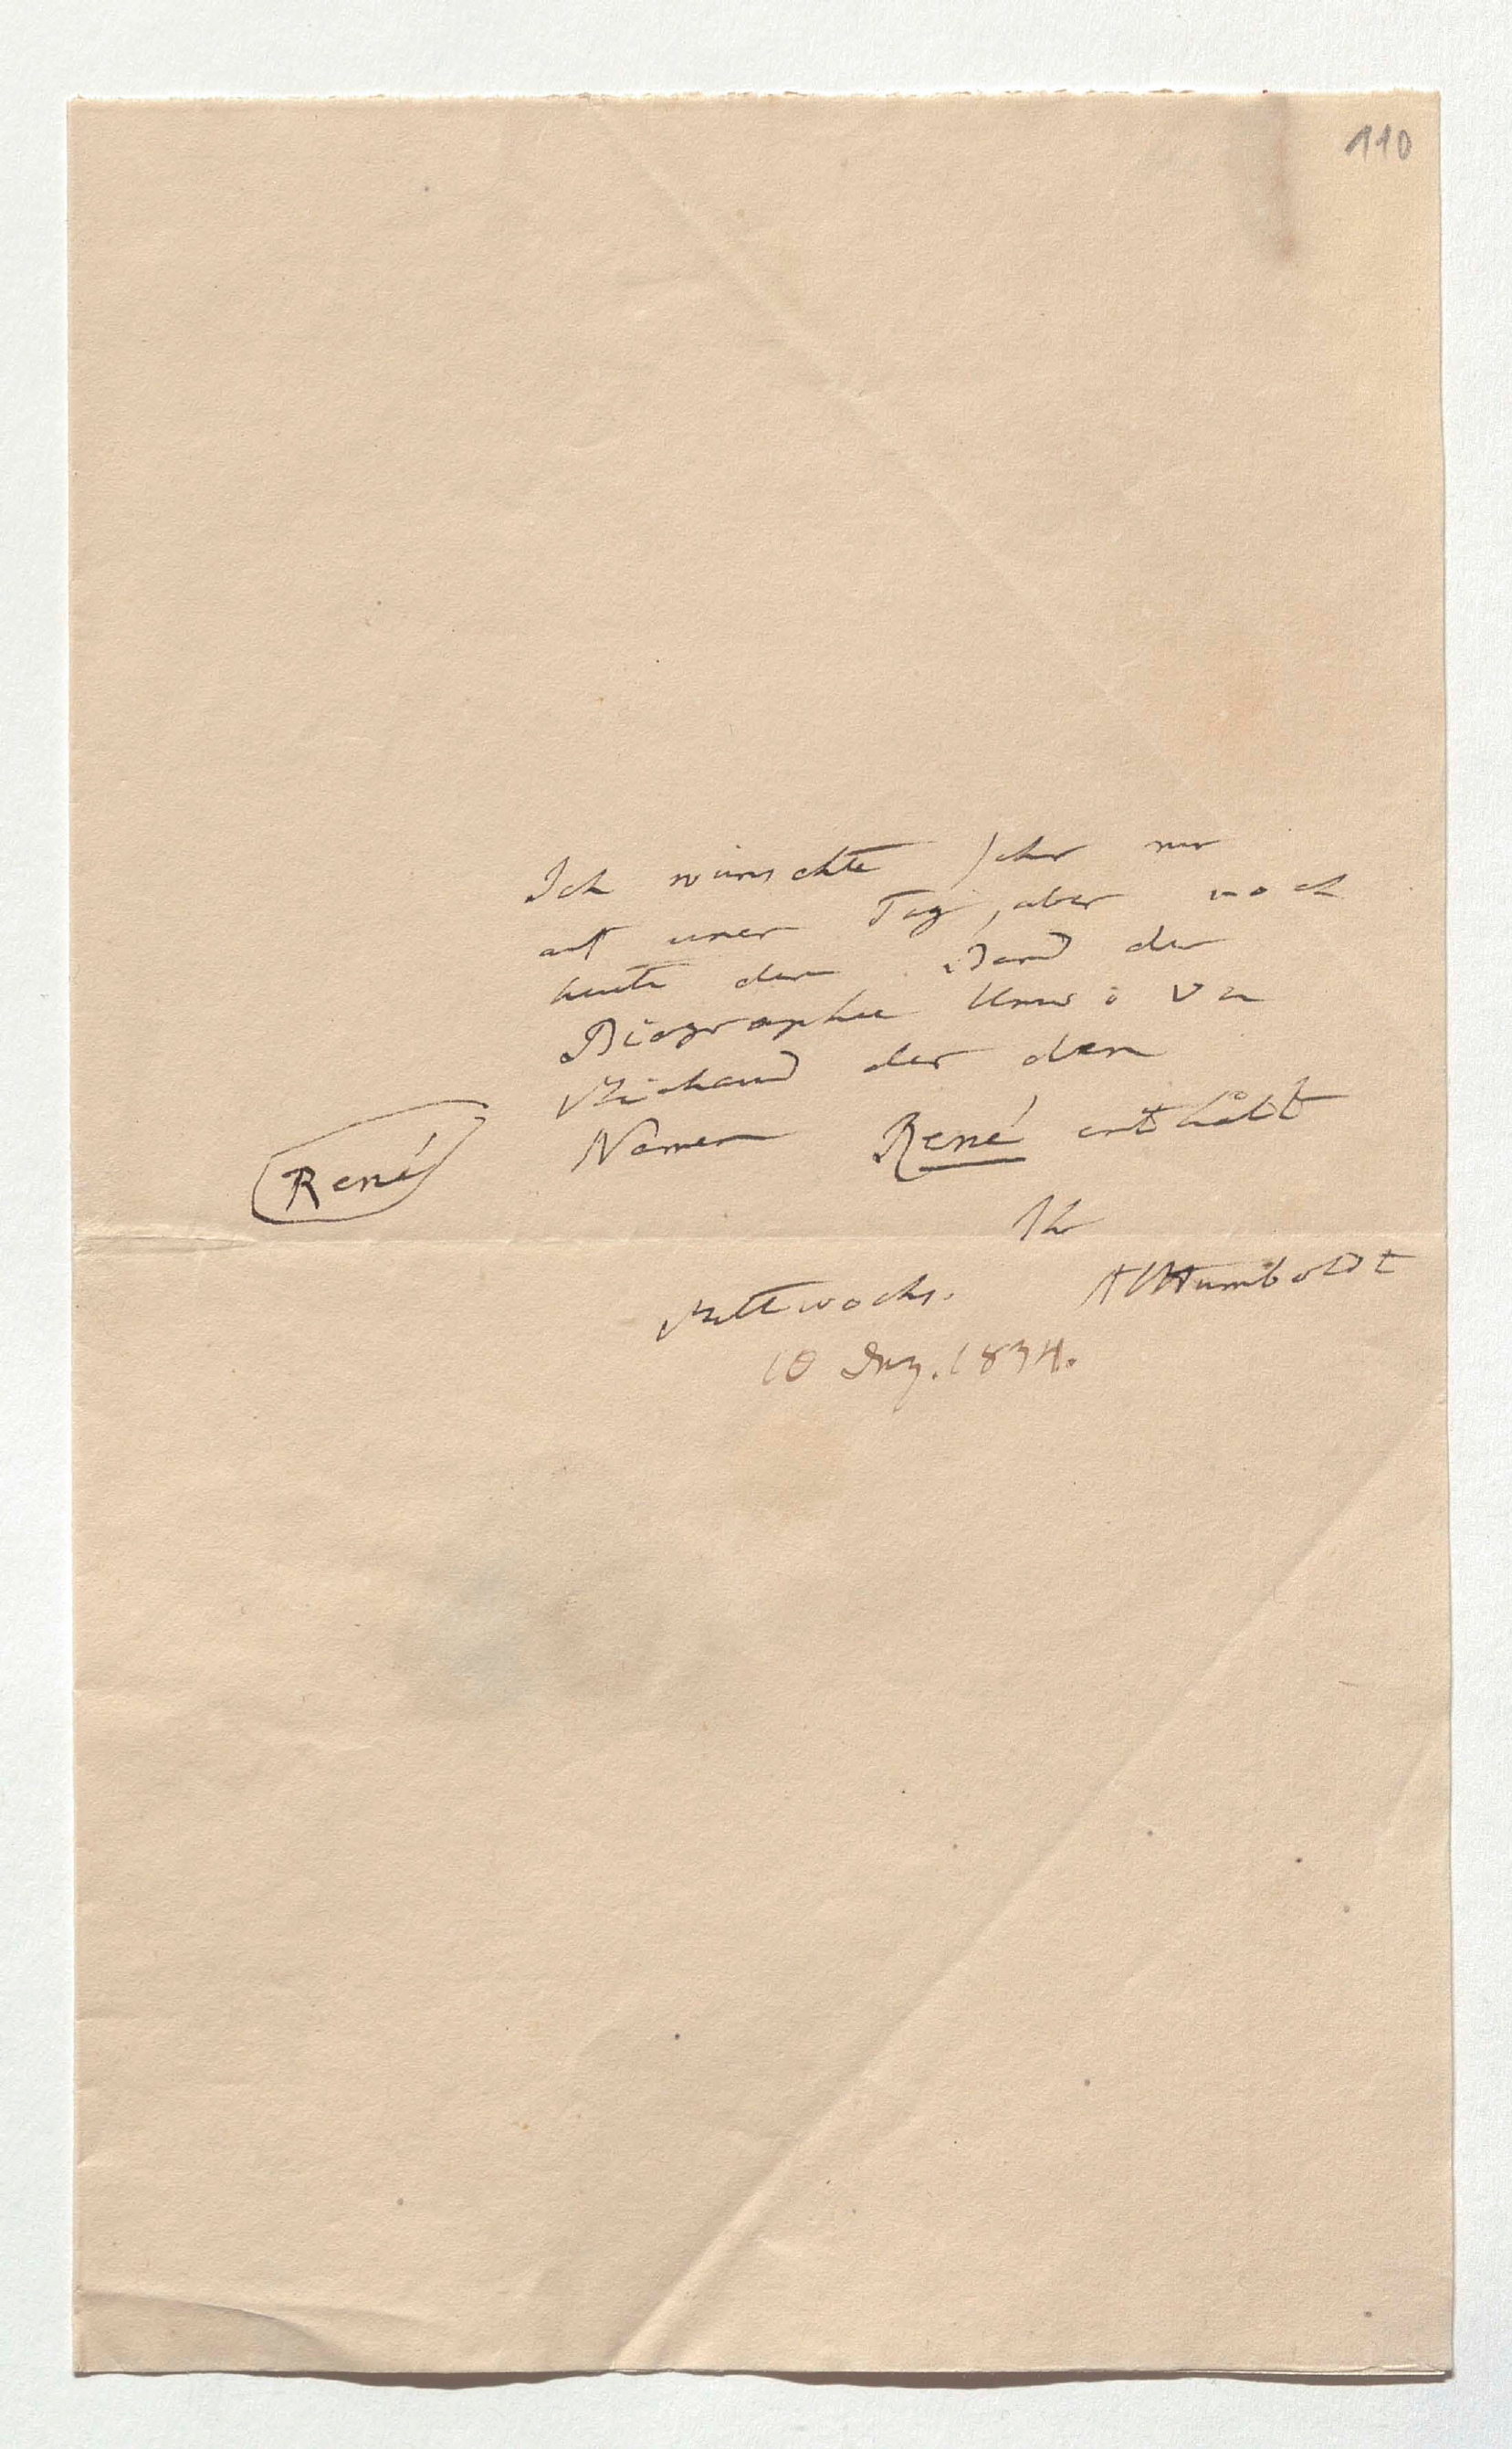 110
Ich wünschte sehr nur
auf einen Tag, aber noch
heute den Band der
Biographie Univ: von
Michaud der den
Namen René enthält
René
Ihr
AlHumboldt
Mittwochs.
10 Dez. 1834.